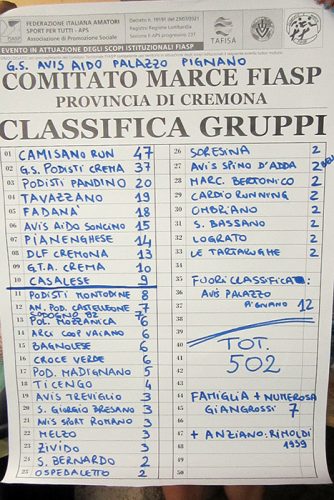 FEDERAZIONE ITALIANA AMATORI
SPORT PER TUTTI - APS
Associazione di Promozione Sociale
FIASP
TAFISA
EVENTO IN ATTUAZIONE DEGLI SCOPI ISTITUZIONALI FIASP
G.S. AVIS AIDO PALAZZO PIGNANO
COMITATO MARCE FIASP
PROVINCIA DI CREMONA
CLASSIFICA GRUPPI
01 CAMISANO RUN 47
02 G.S. PODISTI CREMA 37
03 PODISTI PANDINO 20
04 TAVAZZANO 19
05 FADANA 18
06 AVIS AIDO SONCINO 15
07 PIANENGHESE 14
08 DLF CREMONA 13
09 G.T.A. CREMA 10
10 CASALESE 9
11 PODISTI MONTODINE 8
12 AN. POD. CASTELLEONE 7
SODOGNO 82 7
13 POL. MOZZANICA 6
14 ARCI COOP VAIANO 6
15 BAGNOLESE 6
16 CROCE VERDE 6
17 POD. MADIGNANO 5
18 TICENGO 4
19 AVIS TREVIGLIO 3
20 S. GIORGIO BRESANO 3
21 AVIS SPORT ROMANO 3
22 MELZO 3
23 ZIVIDO 3
24 S. BERNARDO 2
25 OSPEDALETTO 2
26 SORESINA 2
27 AVIS SPINO D'ADDA 2
28 MARC. BERTONICO 2
29 CARDIO RUNNING 2
30 OMBRIANO 2
31 S. BASSANO 2
32 LOGRATO 2
33 LE TARTARUGHE 2
34
35 FUORI CLASSIFICA:
36 AVIS PALAZZO
37 PIGNANO 12
38
39
40 TOT.
41 502
42
43
44 FAMIGLIA + NUMEROSA
45 GIANGROSSI 7
46
47 + ANZIANO: RIMOLDI
48 1939
49
50